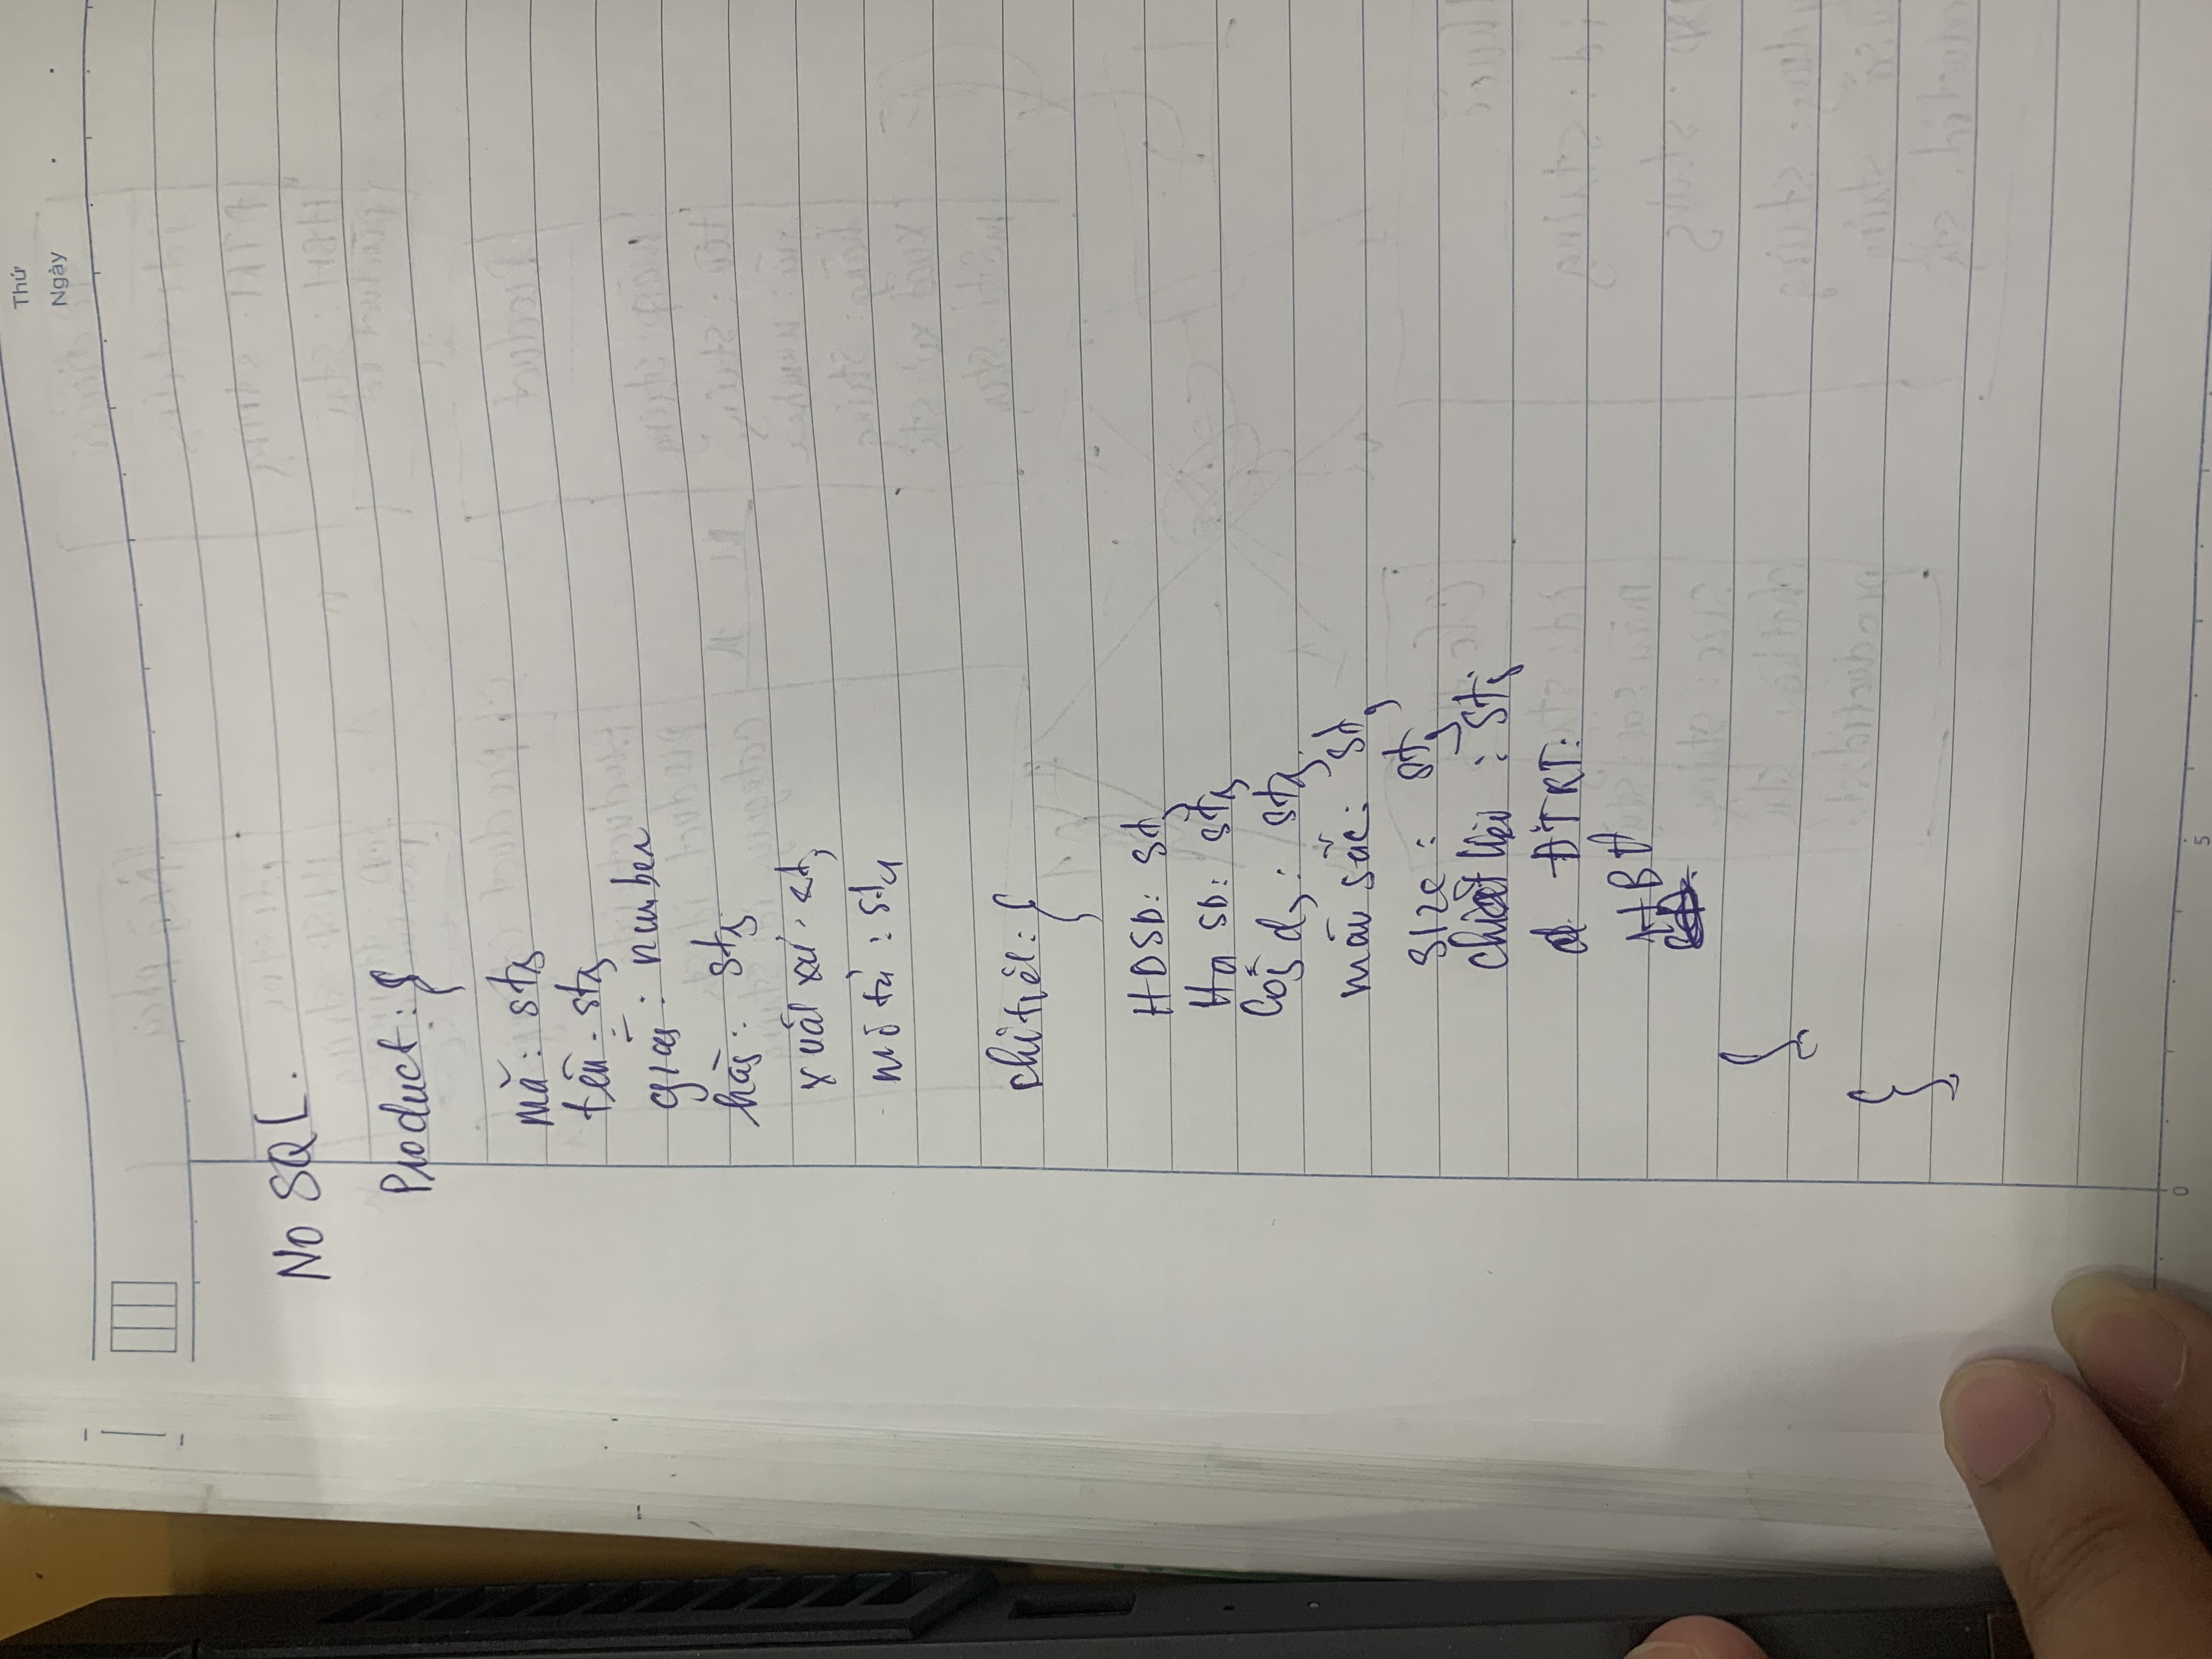 Thứ
Ngày
NO SQL.
Product: {
mã: stg
tên: stg
giá: number
hãg: stg
xuất xứ: stg
mô tả: stg
chi tiết: {
HDSD: stg
Hạ SD: stg
Côg dg: stg
màu sắc: stg
size: stg
chất liệu: stg
ĐTRT:
HBĐ
}
}
0
5